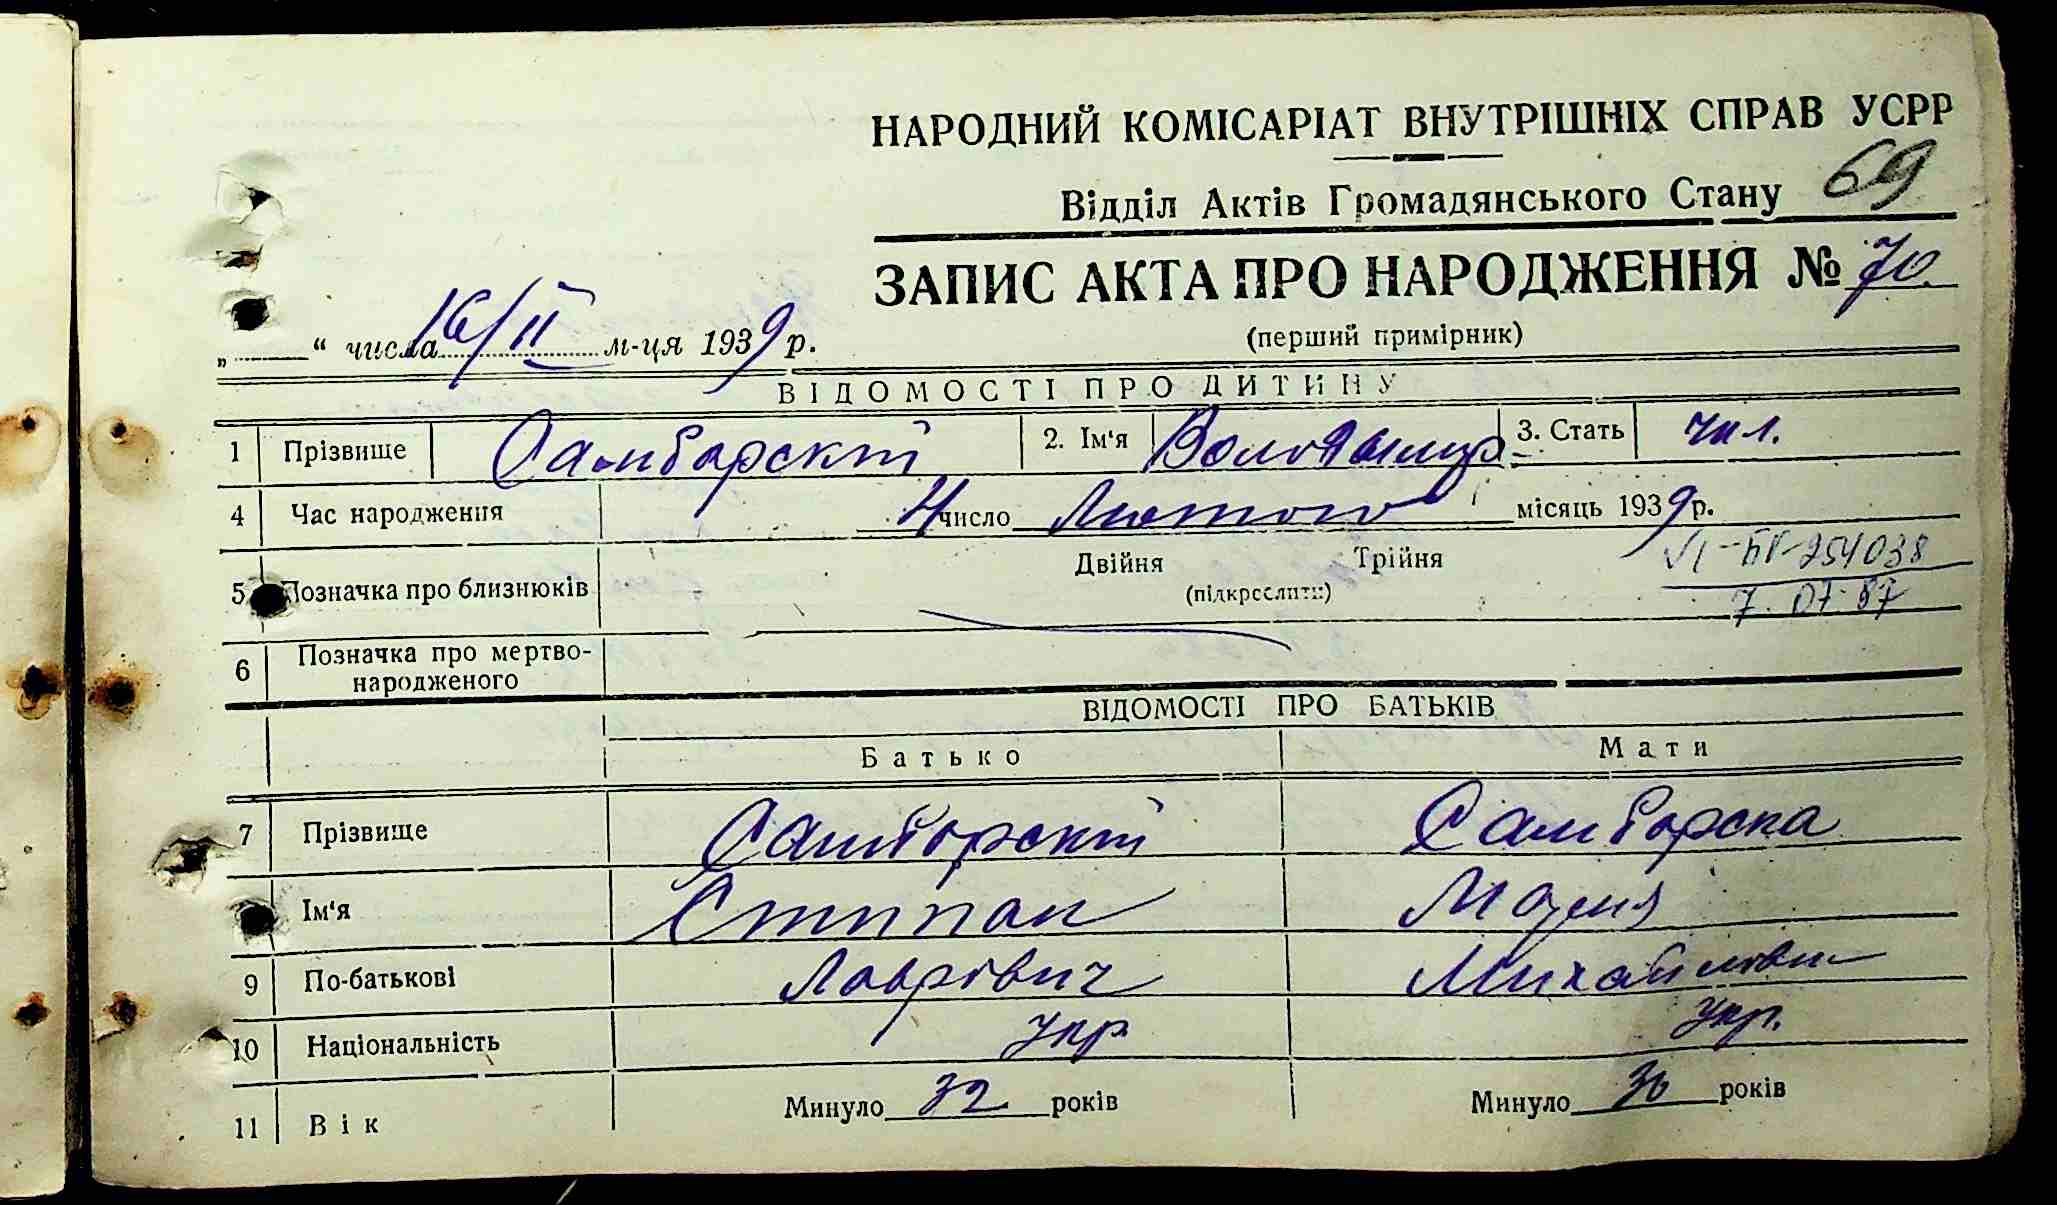 НАРОДНИЙ КОМІСАРІАТ ВНУТРІШНІХ СПРАВ УСРР
Відділ Актів Громадянського Стану 69
ЗАПИС АКТА ПРО НАРОДЖЕННЯ № 70
„ “ числа 16/II м-ця 1939 р.
(перший примірник)
ВІДОМОСТІ ПРО ДИТИНУ
1 Прізвище Самборскій 2. Ім'я Володимир 3. Стать чол.
4 Час народження 4 число Лютого місяць 1939 р.
5 Позначка про близнюків Двійня Трійня
(підкреслити)
VI-БГ-254038
7.07.87
6 Позначка про мертво-
народженого
ВІДОМОСТІ ПРО БАТЬКІВ
Батько Мати
7 Прізвище Самборскій Самборска
Ім'я Степан Марія
9 По-батькові Лаврівич Михайлівн
10 Національність Укр. Укр.
11 Вік Минуло 32 років Минуло 30 років